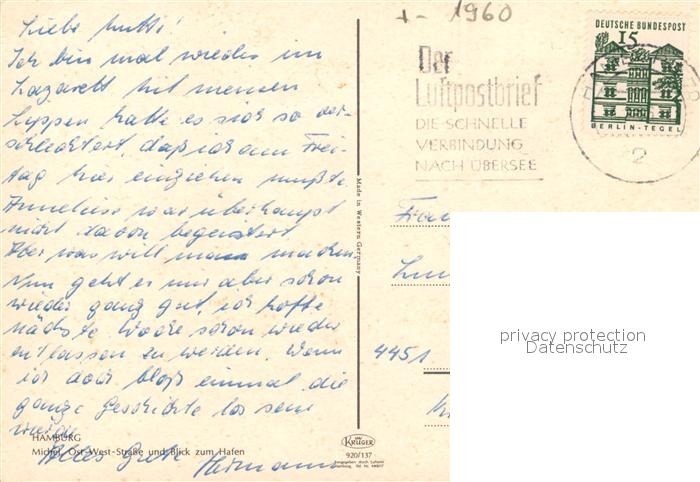 Liebe Mutti!
Ich bin mal wieder im
Lazarett. Mit meinen
Lippen hatte es sich so ver-
schlechtert, daß ich am Frei-
tag hier einziehen mußte.
Anneliese war überhaupt
nicht davon begeistert.
Aber was will man machen.
Nun geht es mir aber schon
wieder ganz gut, ich hoffe
nächste Woche schon wieder
entlassen zu werden. Wenn
ich doch bloß einmal die
ganze Geschichte los sein
würde.
Alles Gute Hermann
HAMBURG
Michel, Ost-West-Straße und Blick zum Hafen
Made in Western Germany
KRÜGER
920/137
+- 1960
Der
Luftpostbrief
DIE SCHNELLE
VERBINDUNG
NACH ÜBERSEE
DEUTSCHE BUNDESPOST
15
BERLIN-TEGEL
2
Frau
4451
privacy protection
Datenschutz